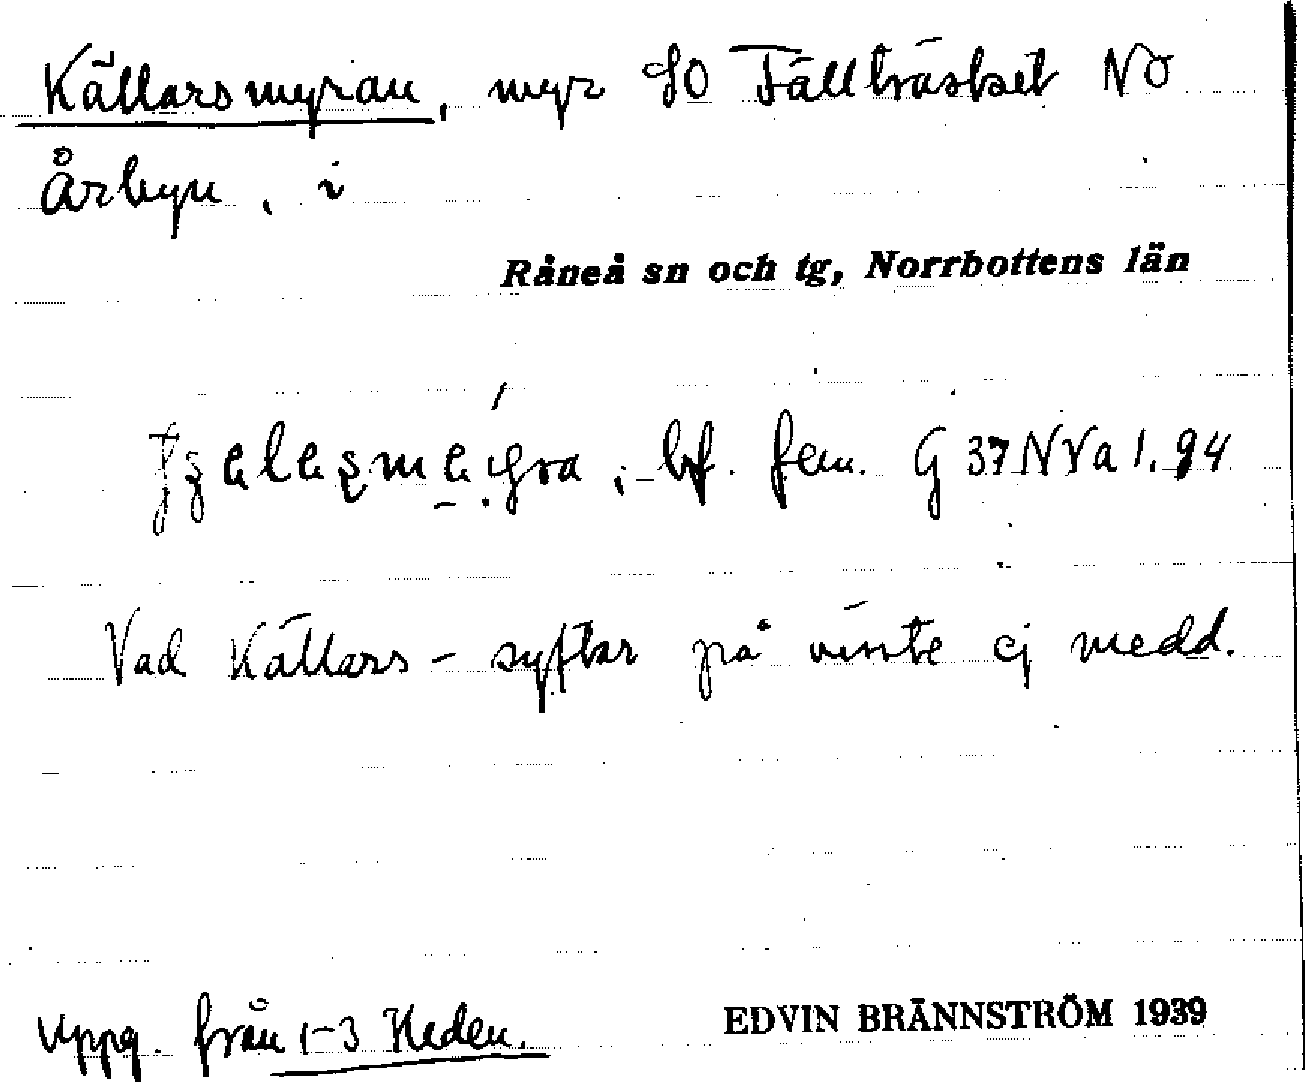 Källarsmyran, myr SO Fällträsket NO
Årbyn, i
Råneå sn och tg, Norrbottens län
; bf. fem. G 37 NVa 1. 94
Vad Källars- syftar på visste ej medd.
Uppg. från 1-3 Heden.
EDVIN BRÄNNSTRÖM 1939